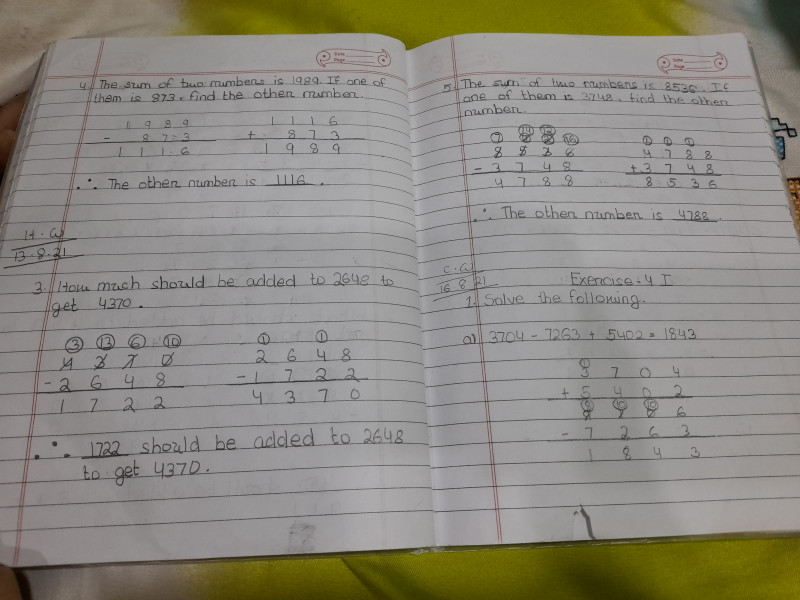 Date
Page
4. The sum of two numbers is 1989. If one of
them is 873. find the other number.
1 9 8 9
- 8 7 3
1 1 1 6
1 1 1 6
+ 8 7 3
1 9 8 9
∴ The other number is 1116.
H.W
13.8.21
3. How much should be added to 2648 to
get 4370.
3 13 6 10
4 3 7 0
- 2 6 4 8
1 7 2 2
1 1
2 6 4 8
- 1 7 2 2
4 3 7 0
∴ 1722 should be added to 2648
to get 4370.
Date
Page
5. The sum of two numbers is 8536. If
one of them is 3748. find the other
number.
- 3 7 4 8
4 7 8 8
1 1 1
4 7 8 8
+ 3 7 4 8
8 5 3 6
∴ The other number is 4788.
C.W
16.8.21
Exercise-4 I
1. Solve the following.
a) 3704 - 7263 + 5402 = 1843
3 7 0 4
+ 5 4 0 2
- 7 2 6 3
1 8 4 3